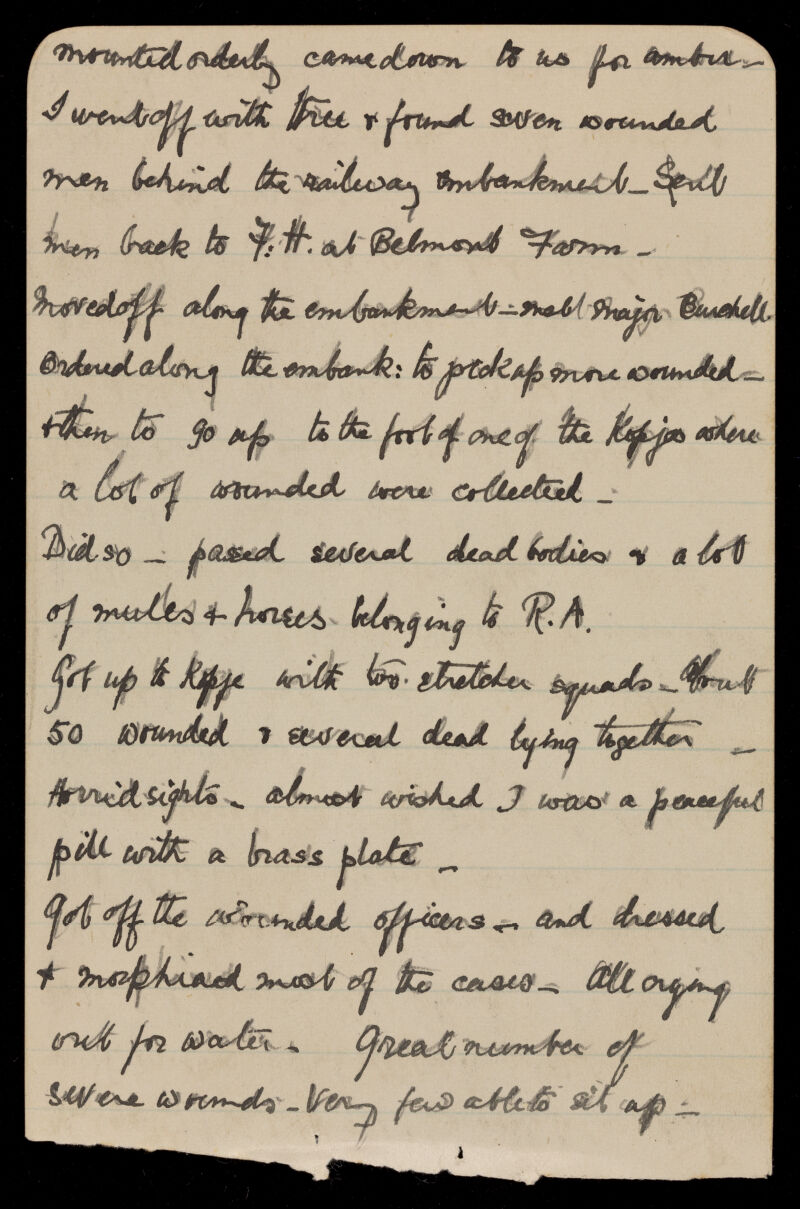 mounted orderly came down to us for ambce –
I went off with three & found seven wounded
men behind the railway embankment – Sent
men back to F. H. at Belmont Farm –
Moved off along the embankment – met Major Burchell
Ordered along the embank: to pick up more wounded –
& then to go up to the foot of one of the Kopjes where
a lot of wounded were collected –
Did so – passed several dead bodies & a lot
of mules & horses belonging to R.A.
Got up to Kopje with two stretcher squads – About
50 wounded & several dead lying together –
Horrid sights – almost wished I was a peaceful
pill with a brass plate –
Got off the wounded officers – and dressed
& morphiaed most of the cases – All crying
out for water – Great number of
severe wounds – Very few able to sit up –